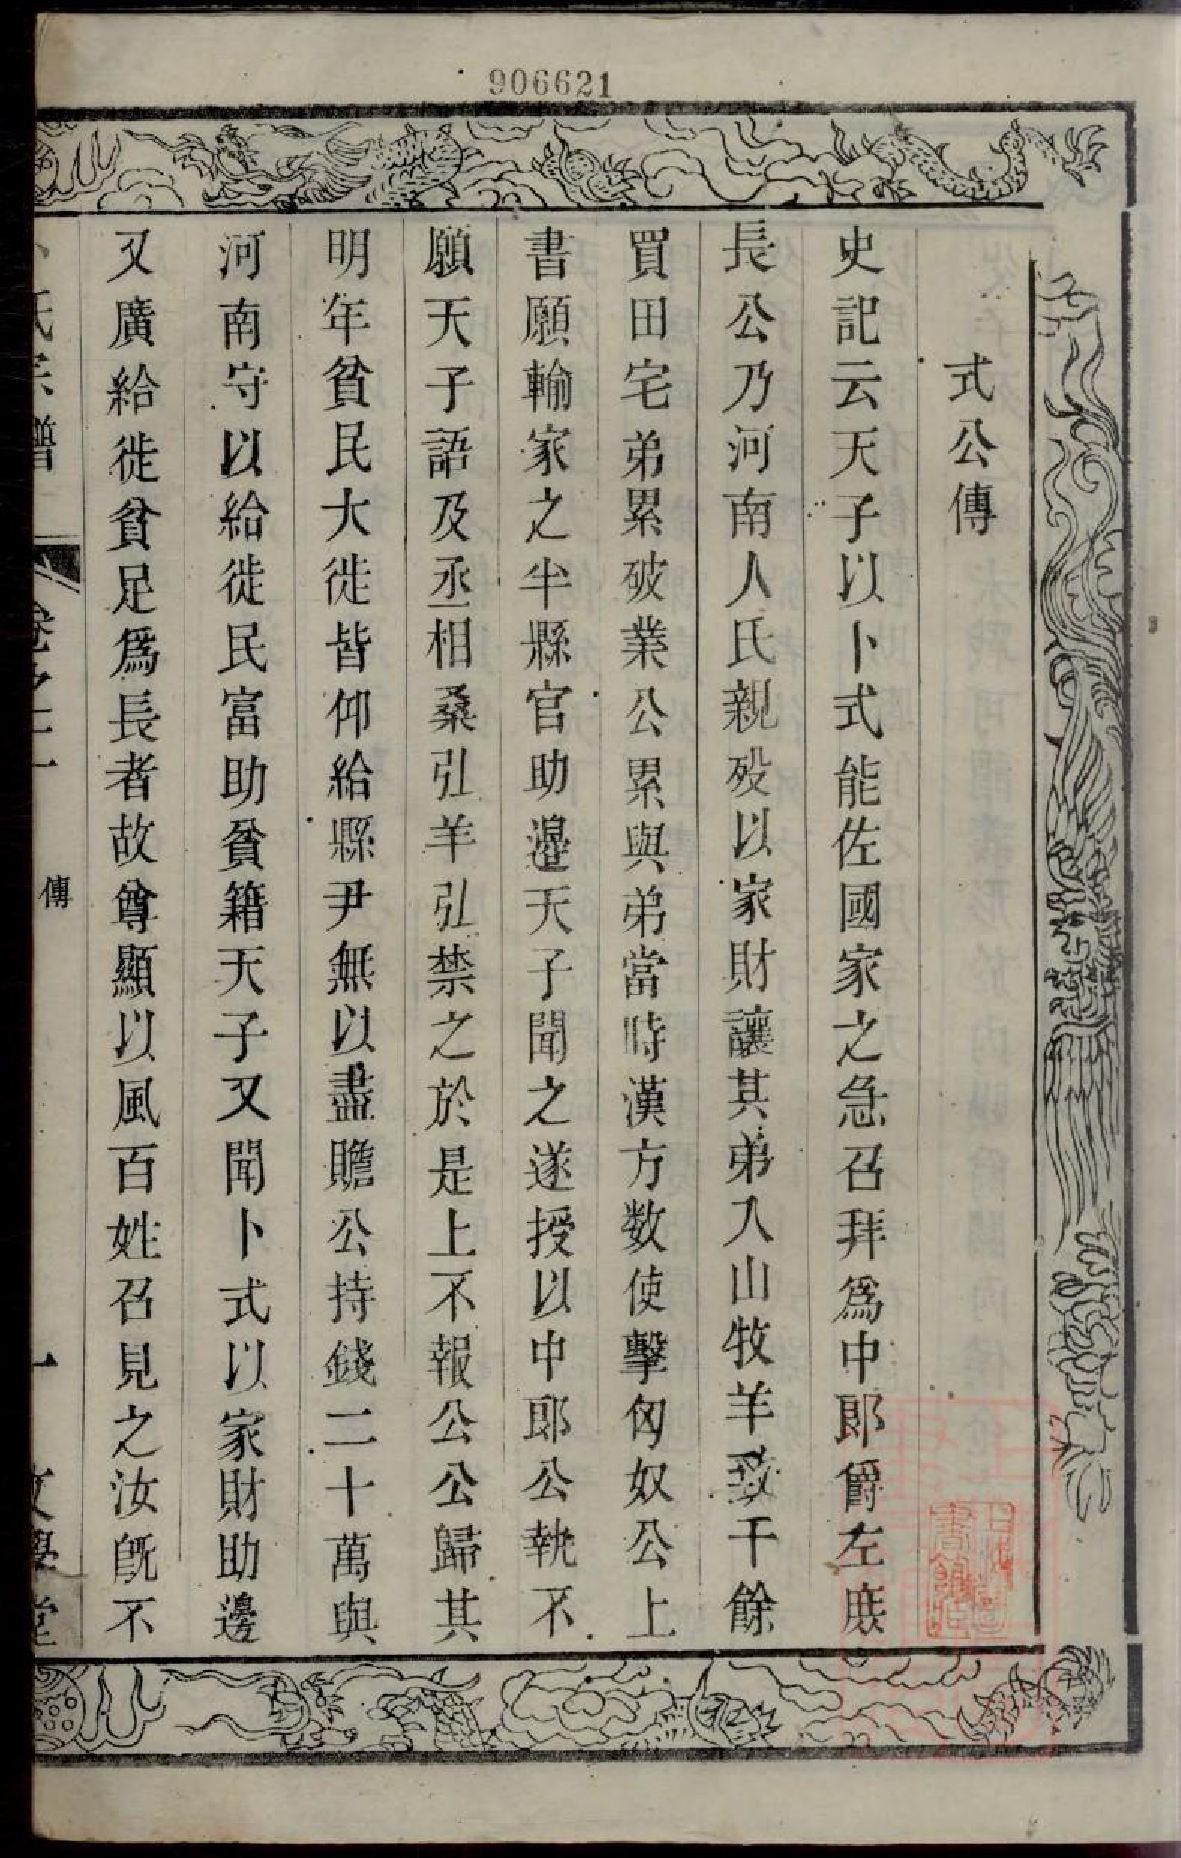 906621
式公傳
史記云天子以卜式能佐國家之急召拜爲中郎爵左庻
長公乃河南人氏親殁以家財讓其弟入山牧羊致千餘
買田宅弟累破業公累與弟當時漢方数使擊匈奴公上
書願輸家之半縣官助邊天子聞之遂授以中郎公執不
願天子語及丞相桑弘羊弘禁之於是上不報公公歸其
明年貧民大徙皆仰給縣尹無以盡贍公持錢二十萬與
河南守以給徙民富助貧籍天子又聞卜式以家財助邊
又廣給徙貧足爲長者故尊顯以風百姓召見之汝旣不
氏宗譜
卷之
傳
一
文學堂